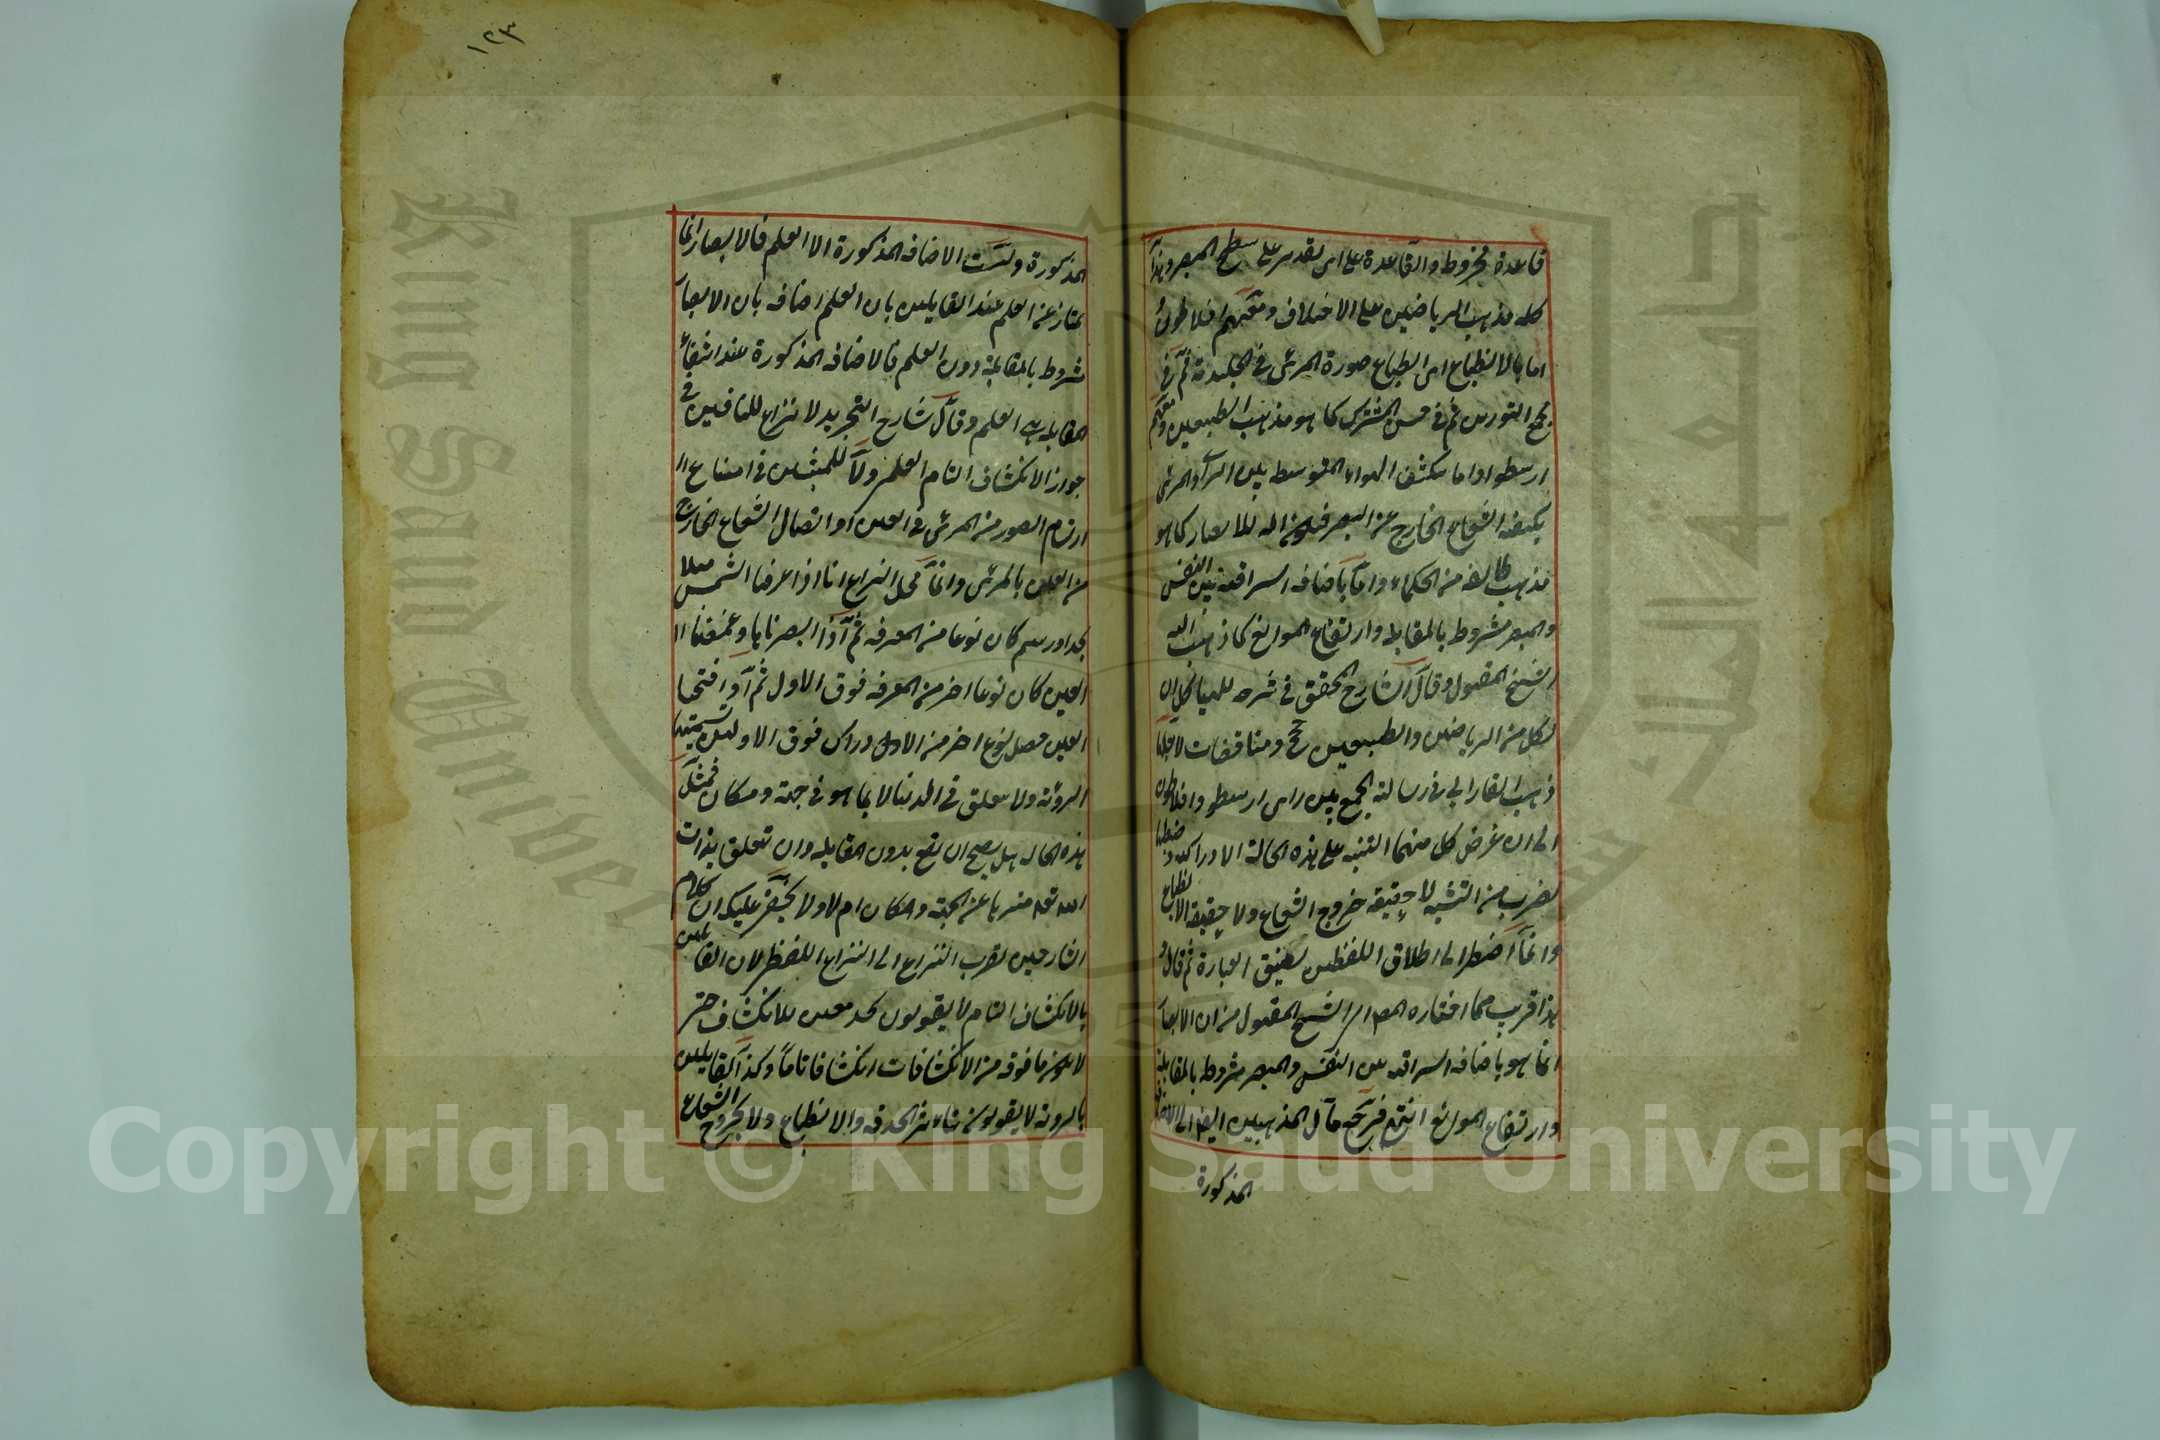 قاعدة مخروط والقاعدة على اى تقدير على سطح المبصر وهذا
كله مذهب الرياضيين على الاختلاف ومنهم افلاطون
اما بالانطباع اى انطباع صورة المرئى فى الجليدية ثم فى
مجمع النورين ثم فى حس المشترك كما هو مذهب الطبيعيين ومنهم
ارسطو او اما بتكيف الهواء المتوسط بين الرآى والمرئى
بكيفية الشعاع الخارج عن البصر فيكون آلة للابصار كما هو
مذهب طائفة من الحكماء واما باضافة اشراقية بين النفس
والمبصر مشروط بالمقابلة وارتفاع الموانع كما ذهب اليه
الشيخ المقتول وقال الشارح المحقق فى شرحه للهياكل ان
لكل من الرياضيين والطبيعيين حجج ومناقضات
ذهب الفارابى فى رسالته الجمع بين رايى ارسطو وافلاطون
الى ان غرض كل منهما التنبيه على هذه الحالة الادراكية وضبطها
لضرب من التشبيه لا حقيقة خروج الشعاع ولا حقيقة الانطباع
وانما اضطر الى اطلاق اللفظين لضيق العبارة ثم قال و
هذا قريب مما اختاره المص اى الشيخ المقتول من ان الابصار
انما هو باضافة اشراقية بين النفس والمبصر مشروط بالمقابلة
وارتفاع الموانع انتهى فرجع مآل المذهبين ايضا الى الاضافة
المذكورة
١٢٣
المذكورة وليست الاضافة المذكورة الا العلم فالابصار انما
يمتاز عن العلم عند القايلين بان العلم اضافة بان الابصار
مشروط بالمقابلة دون العلم فالاضافة المذكورة عند انتفاء
المقابلة هى العلم وقال شارح التجريد لا نزاع للنافين فى
جواز الانكشاف التام العلمى ولا للمثبتين فى امتناع
ارتسام الصور من المرئى فى العين او اتصال الشعاع الخارج
من العين بالمرئى وانما محل النزاع انا اذا عرفنا الشمس مثلا
بحد او رسم كان نوعا من المعرفة ثم اذا ابصرناها وغمضنا
العين كان نوعا اخر من المعرفة فوق الاول ثم اذا فتحنا
العين حصل نوع اخر من الادراك فوق الاولين نسميه
الرؤية ولا يتعلق فى الدنيا الا بما هو فى جهة ومكان فمثل
هذه الحالة هل يصح ان تقع بدون المقابلة وان تتعلق بذات
الله تعالى منزها عن الجهة والمكان ام لا ولا يخفى عليك ان كلام
الشارحين لقرب النزاع الى النزاع اللفظى لان القايلين
بالانكشاف التام لا يقولون بحد معين للانكشاف حتى
لا يكون ما فوقه من الانكشافات انكشافا تاما وكذا القايلين
بالرؤية لا يقولون بتاثير الحدقة والانطباع ولا بخروج الشعاع
Copyright © King Saud University